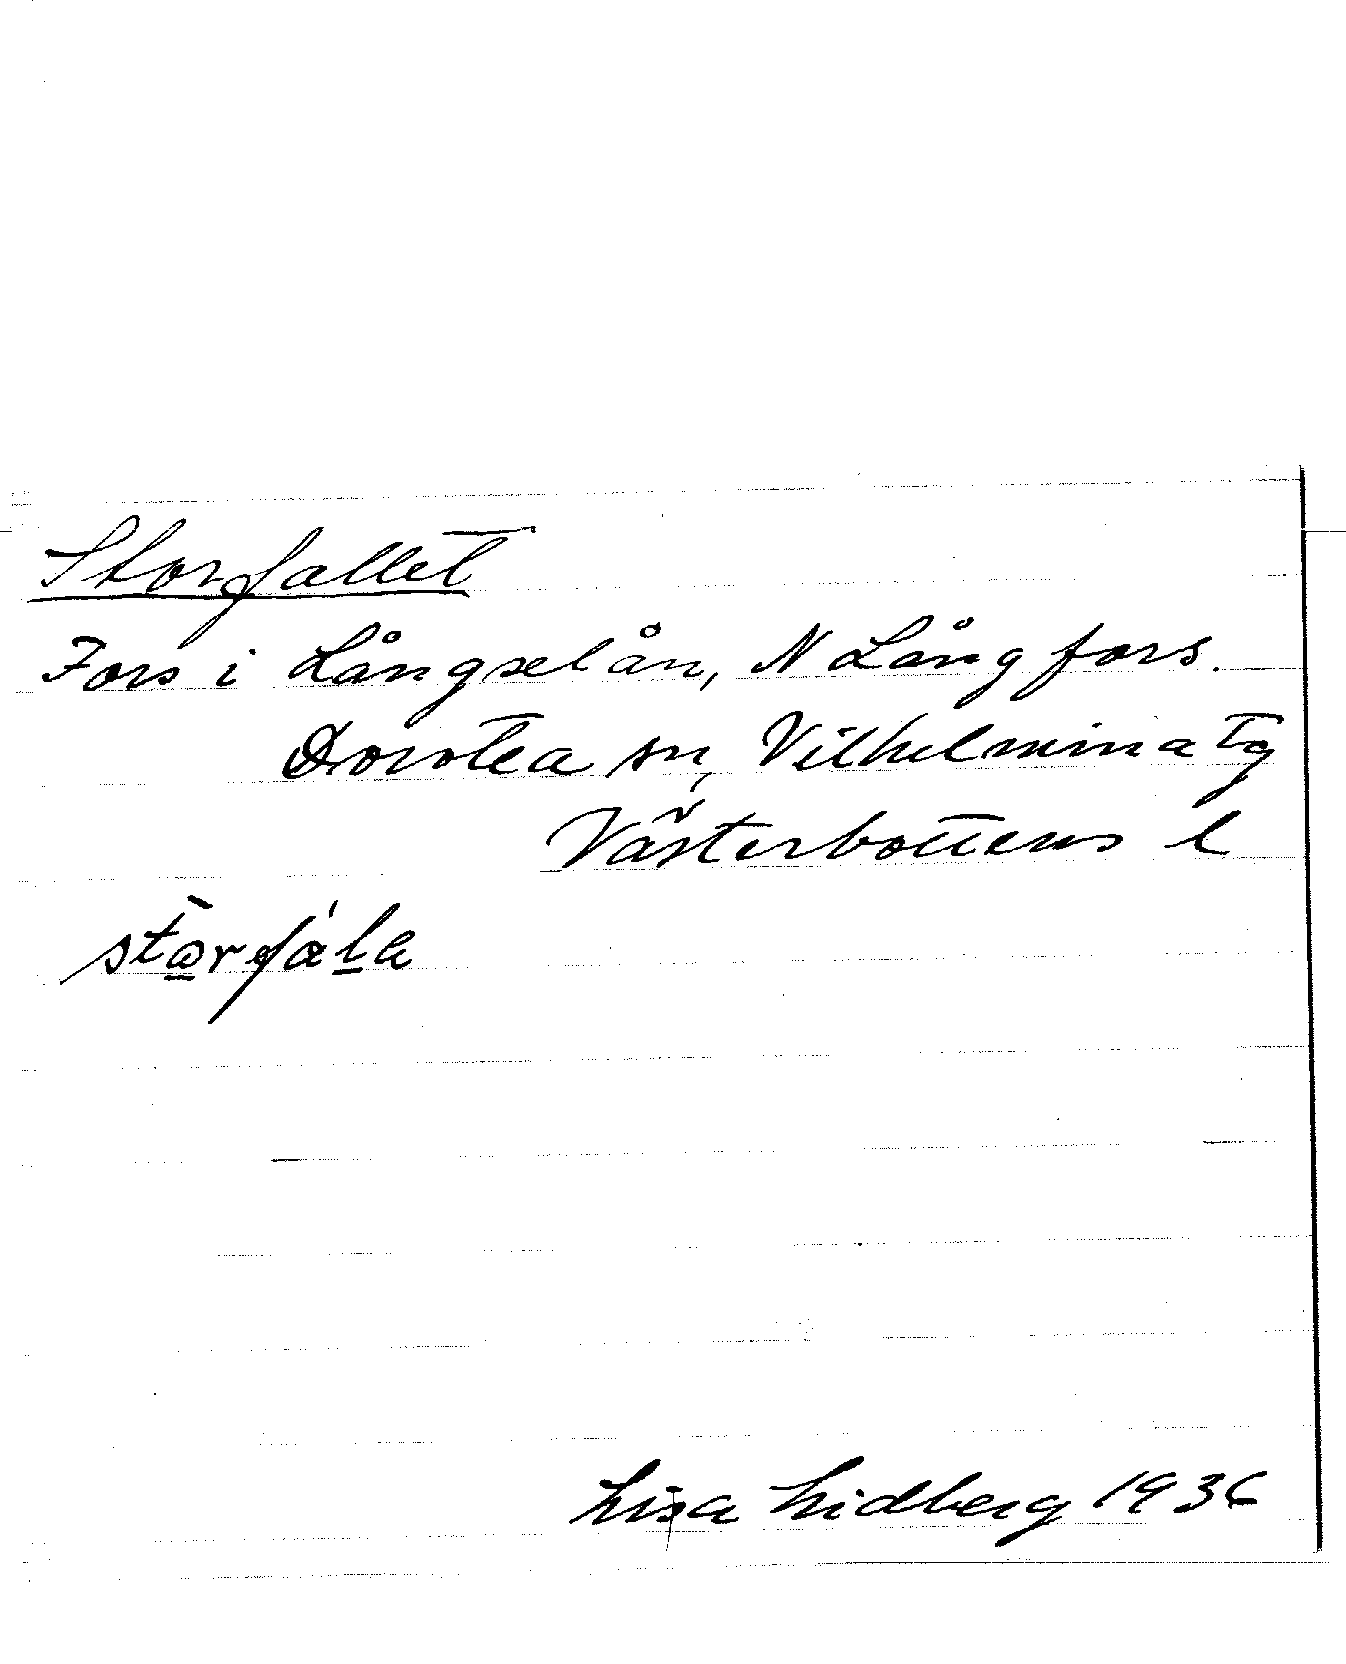 Storfallet
Fors i Långselån, N Långfors.
Dorotea sn, Vilhelmina tg
Västerbottens l
Lisa Lidberg 1936